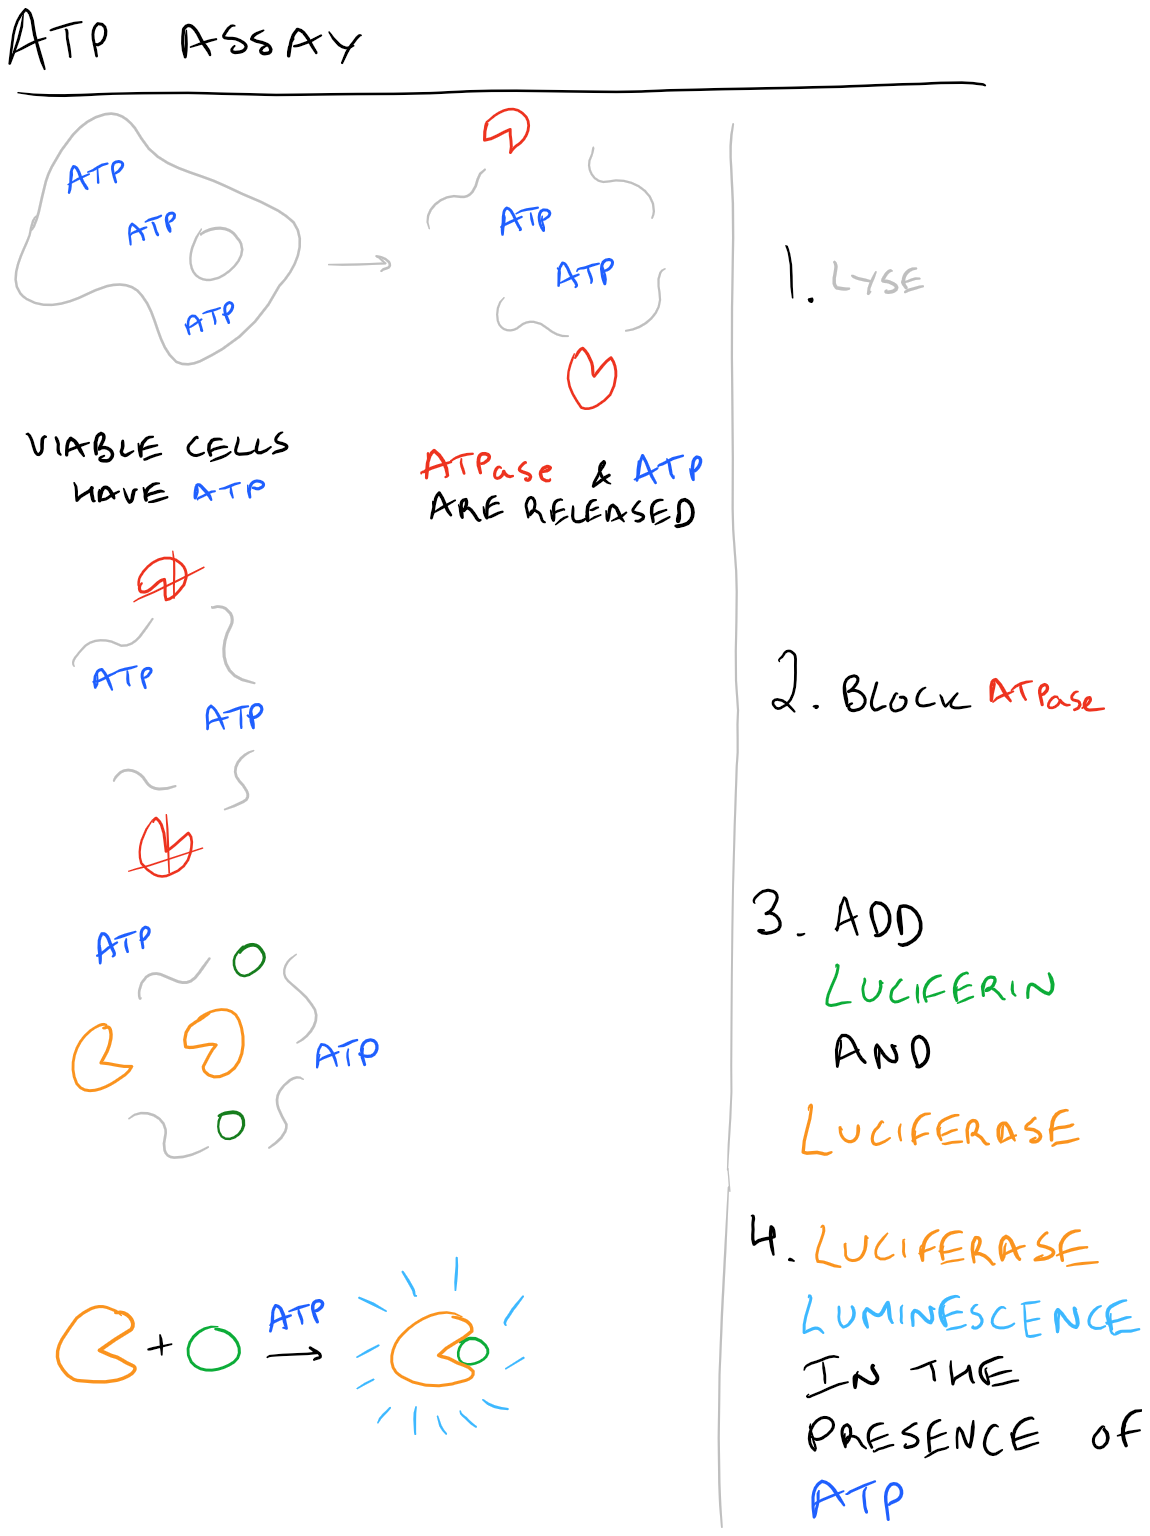 ATP ASSAY
ATP
ATP
ATP
ATP
ATP
1. LYSE
VIABLE CELLS
HAVE ATP
ATPase & ATP
ARE RELEASED
ATP
ATP
2. BLOCK ATPase
ATP
ATP
3. ADD
LUCIFERIN
AND
LUCIFERASE
+
ATP
4. LUCIFERASE
LUMINESCENCE
IN THE
PRESENCE OF
ATP